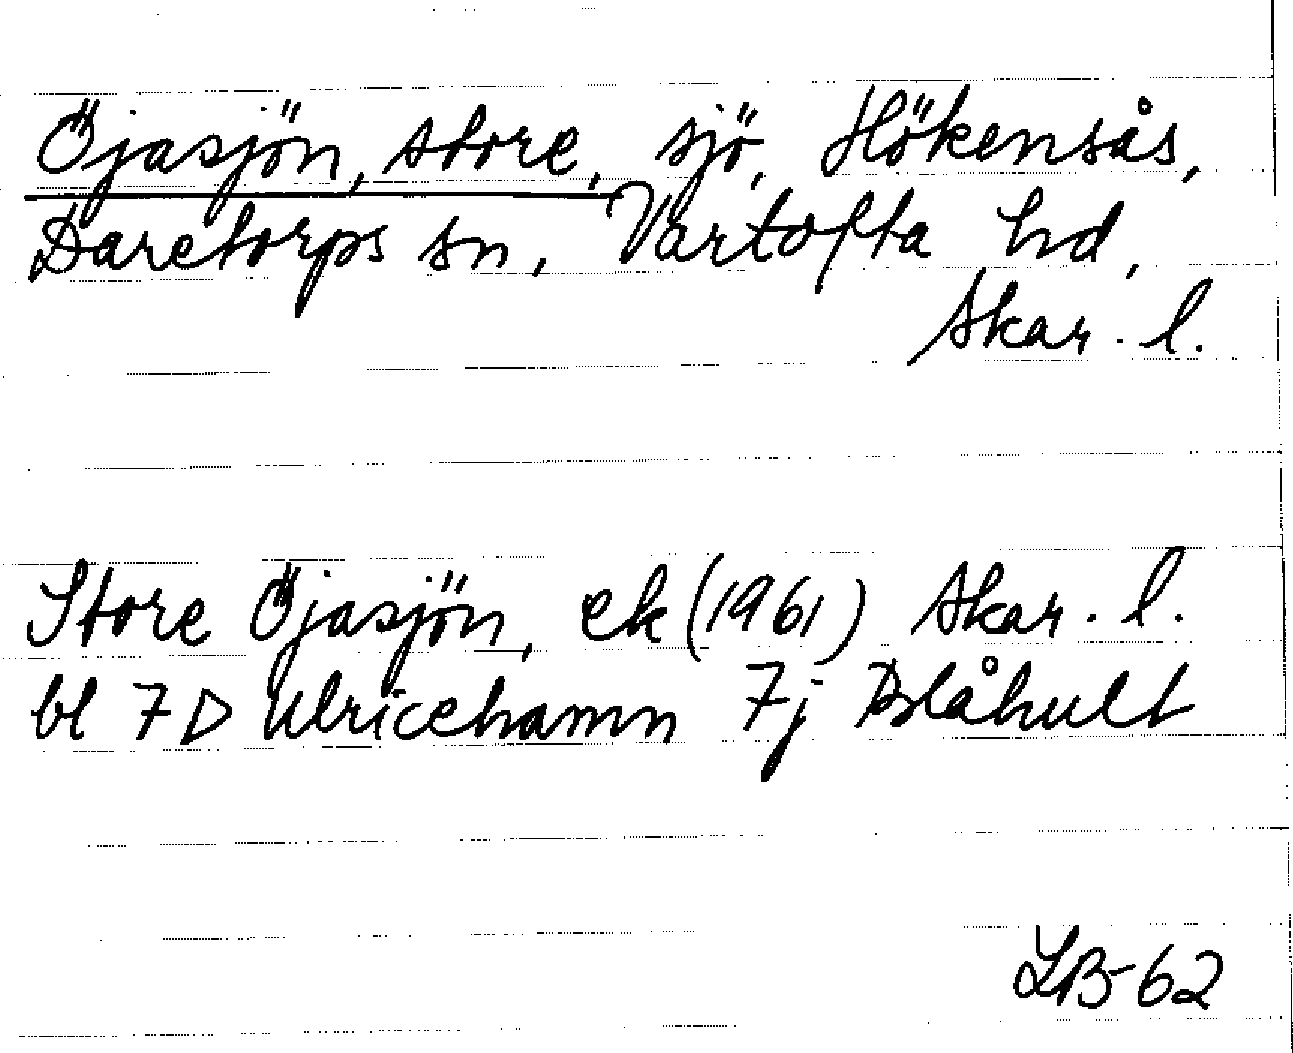 Öjasjön, store, sjö, Hökensås,
Daretorps sn, Vartofta hd,
Skar. l.
Store Öjasjön, ek (1961) Skar. l.
bl 7D Ulricehamn 7j Blåhult
LB-62